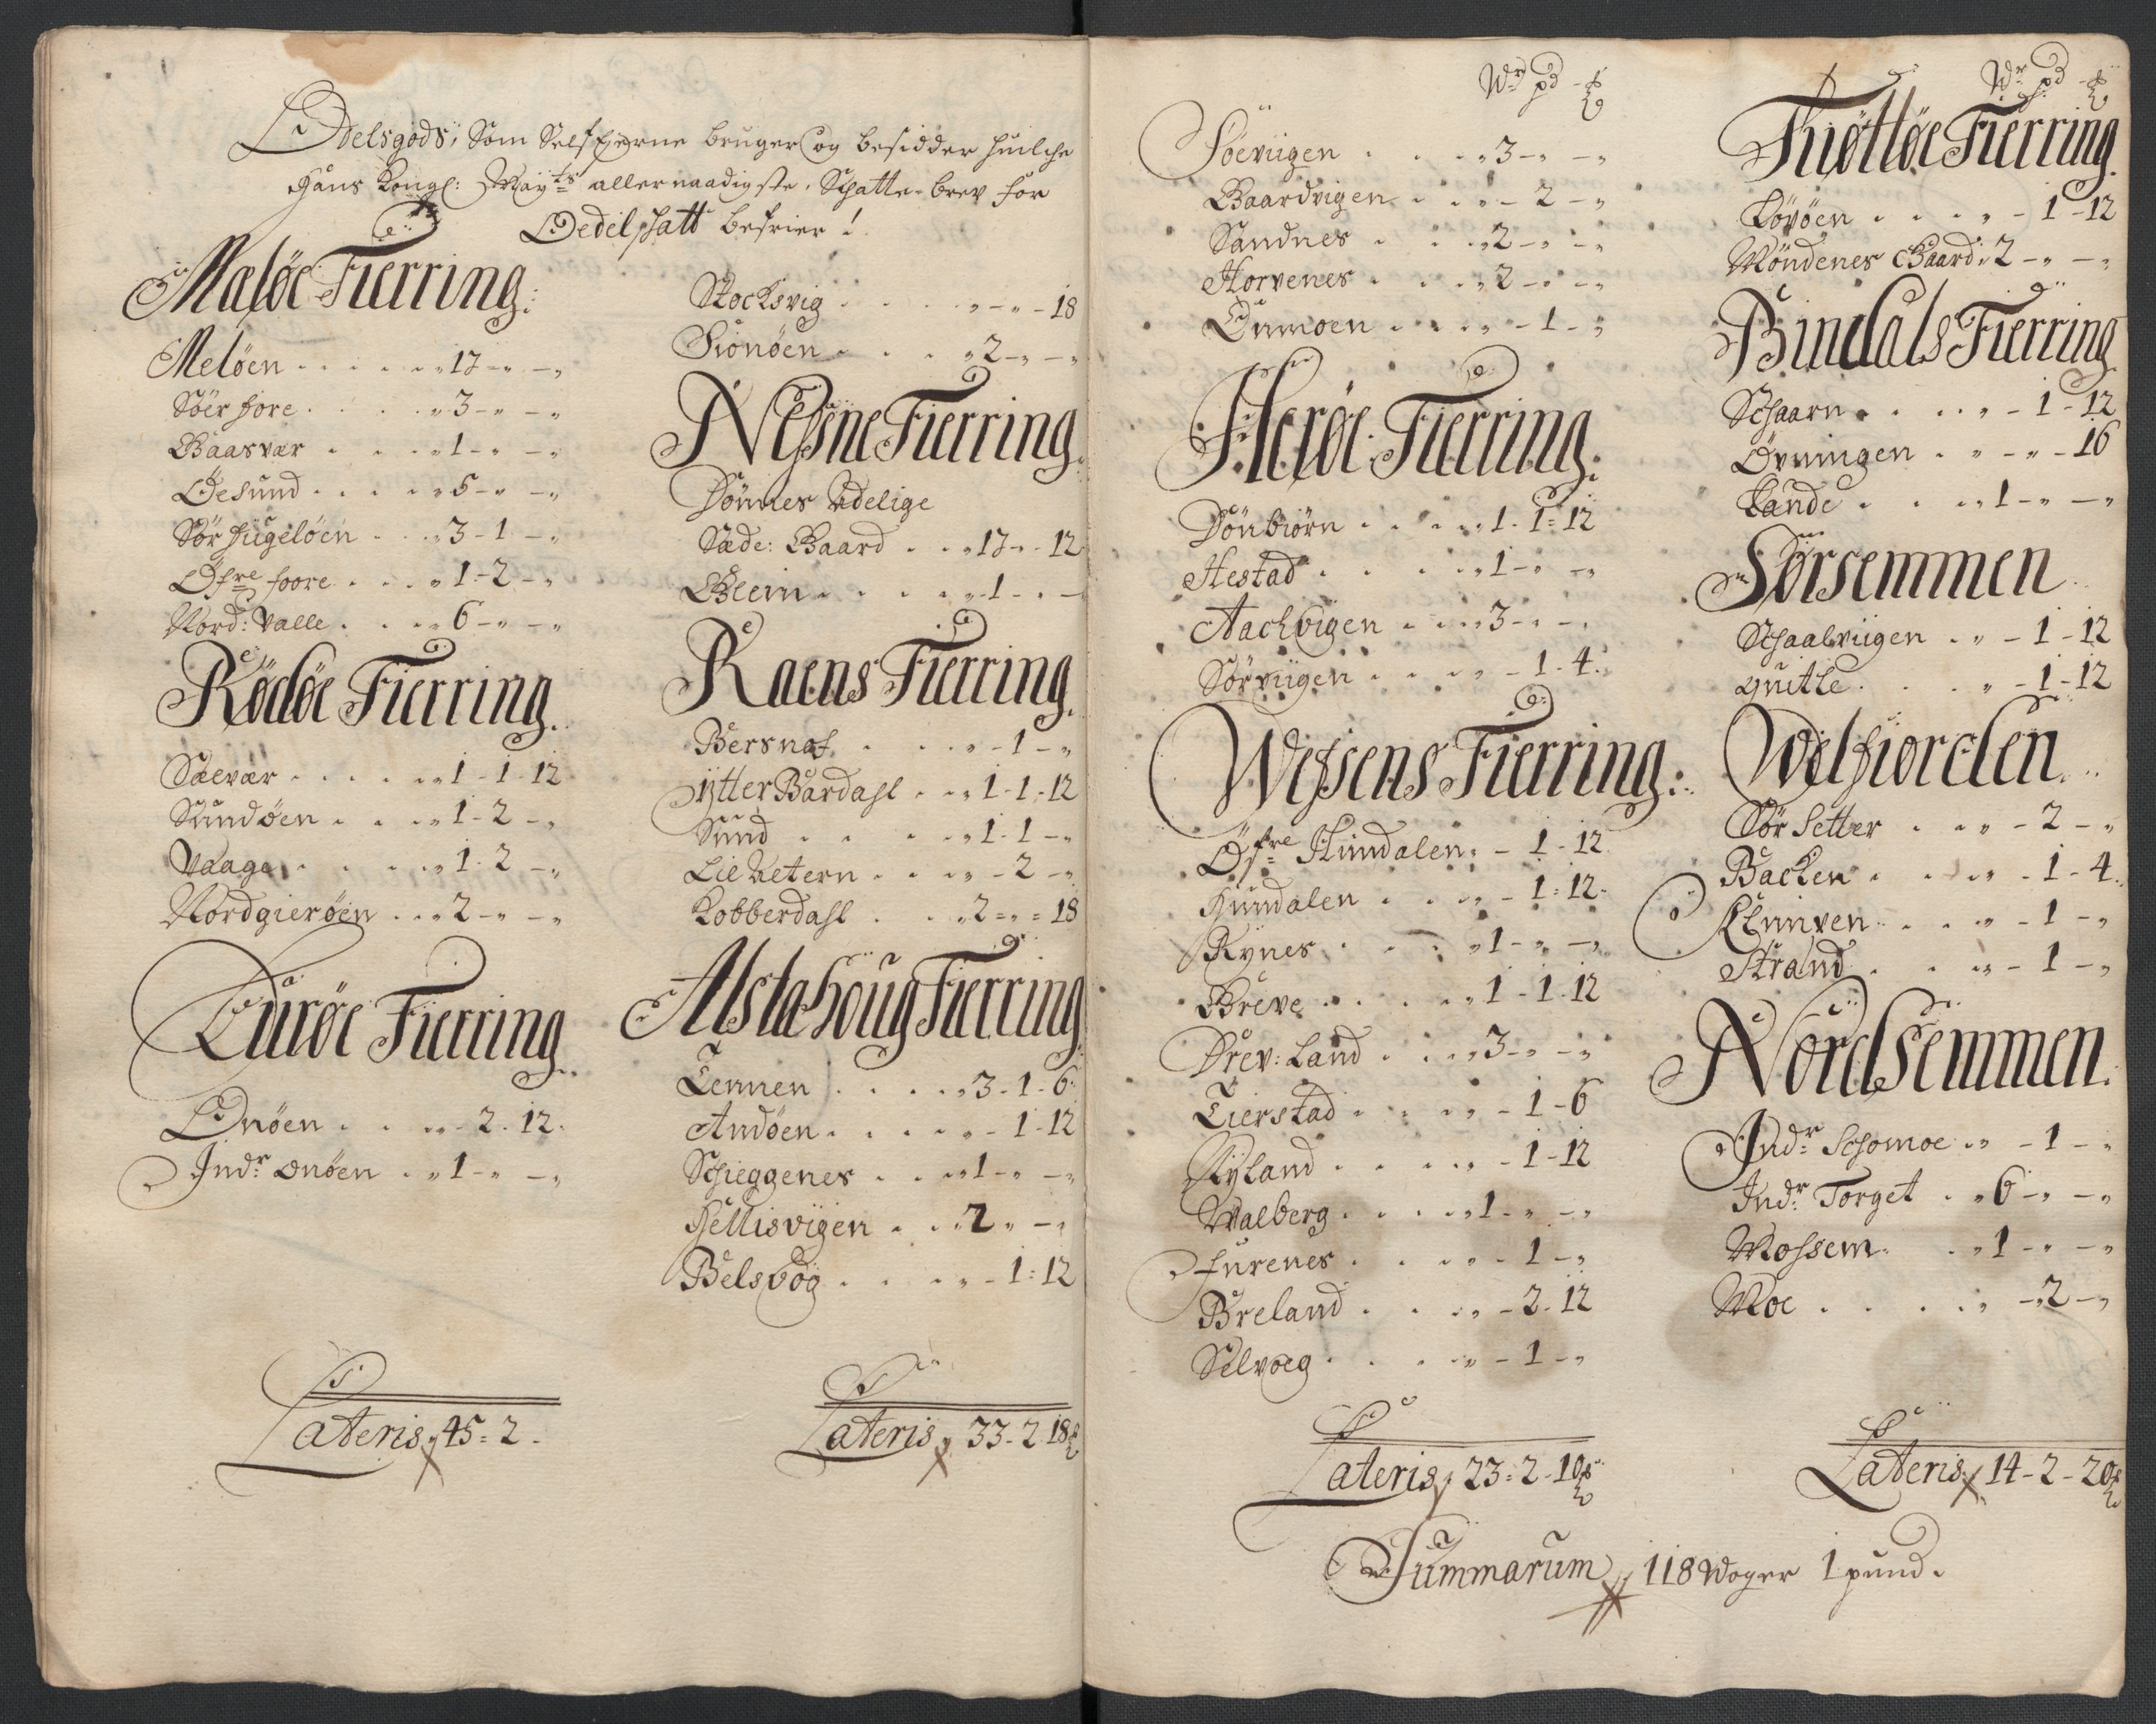 Odelsgods, Som Selfeierne bruger og besidder huilche
Hans Kongl: Mayts allernaadigste Schatte-brev for
Oedelschatt befrier !
Meløe Fierring:
Meløen . . . . . „ 17 - „ - „
Söer fore . . . . „ 3 - „ - „
Baasvær . . . „ 1 - „ - „
Øesund . . . . „ 5 - „ - „
Sør fugeløen . . „ 3 - 1 - „
Øfre foore . . . „ 1 - 2 - „
Nord: Valle . . . „ 6 - „ - „
Rødøe Fierring.
Sæevær . . . . „ 1 - 1 - 12
Sundøen . . . „ 1 - 2 - „
Vaage . . . . „ 1 - 2 - „
Nordgierøen . . „ 2 - „ - „
Lurøe Fierring.
Onøen . . . „ - 2 - 12.
Indr onøen . . „ 1 - „ - „
Lateris 45 = 2 -
Stocksvig . . . . „ - „ - 18
Sionøen . . . „ 2 - „ - „
Nessne Fierring.
Dönnes Adelige
Sæde: Gaard . . „ 17 - „ - 12
Gleein . . . . „ 1 - „ -
Raens Fierring.
Bersnæf . . . „ - 1 - „
Ytter Bardahl . . „ 1 - 1 - 12
Sund . . . . „ 1 - 1 - „
Lie Uetern . . . „ - 2 - „
Kobberdahl . . „ 2 = „ = 18
Alstahoug Fierring
Tennen . . . . „ 3 - 1 - 6
Andøen . . . . „ - 1 - 12
Schieggenes . . „ 1 - „ - „
Hellisvigen . . „ 2 „ - „
Belsvog . . . „ - 1 = 12
Lateris 33 - 2 18
Wr pd
Söeviigen . . . „ 3 - „ - „
Baardvigen . . „ - 2 - „
Sandnes . . . „ 2 - „ - „
Horvenes . . . „ 2 - „ - „
Unmoen . . . „ - 1 - „
Herøe Fierring:
Dönbiörn . . . „ 1 - 1 = 12
Hestad . . . „ 1 - „ - „
Aachvigen . . . „ 3 - „ - „
Sörviigen . . . „ - 1 - 4.
Wefsens Fierring:
Øfre Hundalen: - 1 - 12
Hundalen . . . „ - 1 = 12.
Rynes . . . . „ 1 - „ - „
Greve . . . . „ 1 - 1 - 12
Drev: Land . . . „ 3 - „ - „
Tierstad . . . „ - 1 - 6
Nyland . . . . „ - 1 - 12
Walberg . . . . „ 1 - „ - „
Furenes . . . . „ - 1 - „
Breland . . . „ - 2 - 12
Selvoeg . . . „ - 1 - „
Lateris 23 = 2 - 10
Wr pd
Thiøttøe Fierring.
Løvøen . . . „ - 1 - 12
Möndenes Gaard: 2 - „ - „
Bindals Fierring
Schaarn . . . . „ - 1 - 12
Övningen . . „ - „ - 16
Lande . . . „ 1 - „ - „
Sørsemmen
Schaalviigen . . „ - 1 - 12
quitle . . . „ - 1 - 12
Welfiorden.
Sör Setter . . „ - 2 - „
Backen . . . „ - 1 - 4.
Kluinven . . . „ - 1 - „
Strand . . . „ - 1 - „
Nordsemmen.
Indr Schomoe . „ - 1 - „
Indr Torget . „ 6 - „ - „
Mossem . . „ 1 - „ - „
Moe . . . . „ - 2 - „
Lateris 14 - 2 - 20
Summarum 118 Woger 1 pund.